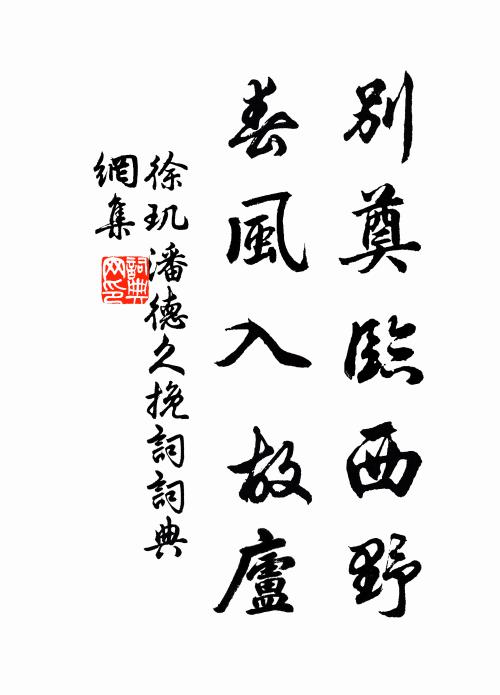 別奠臨西野
春風入故廬
徐玑潘德久挽詞詞典
網集
詞典
网印